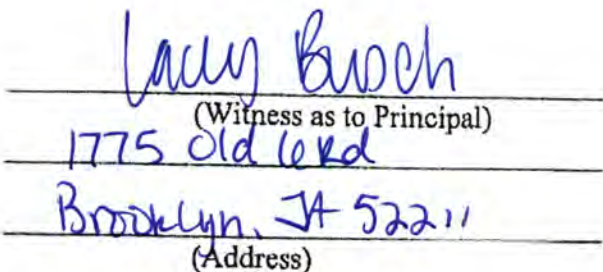 Lacey Busch
(Witness as to Principal)
1775 Old 6 Rd
Brooklyn, IA 52211
(Address)